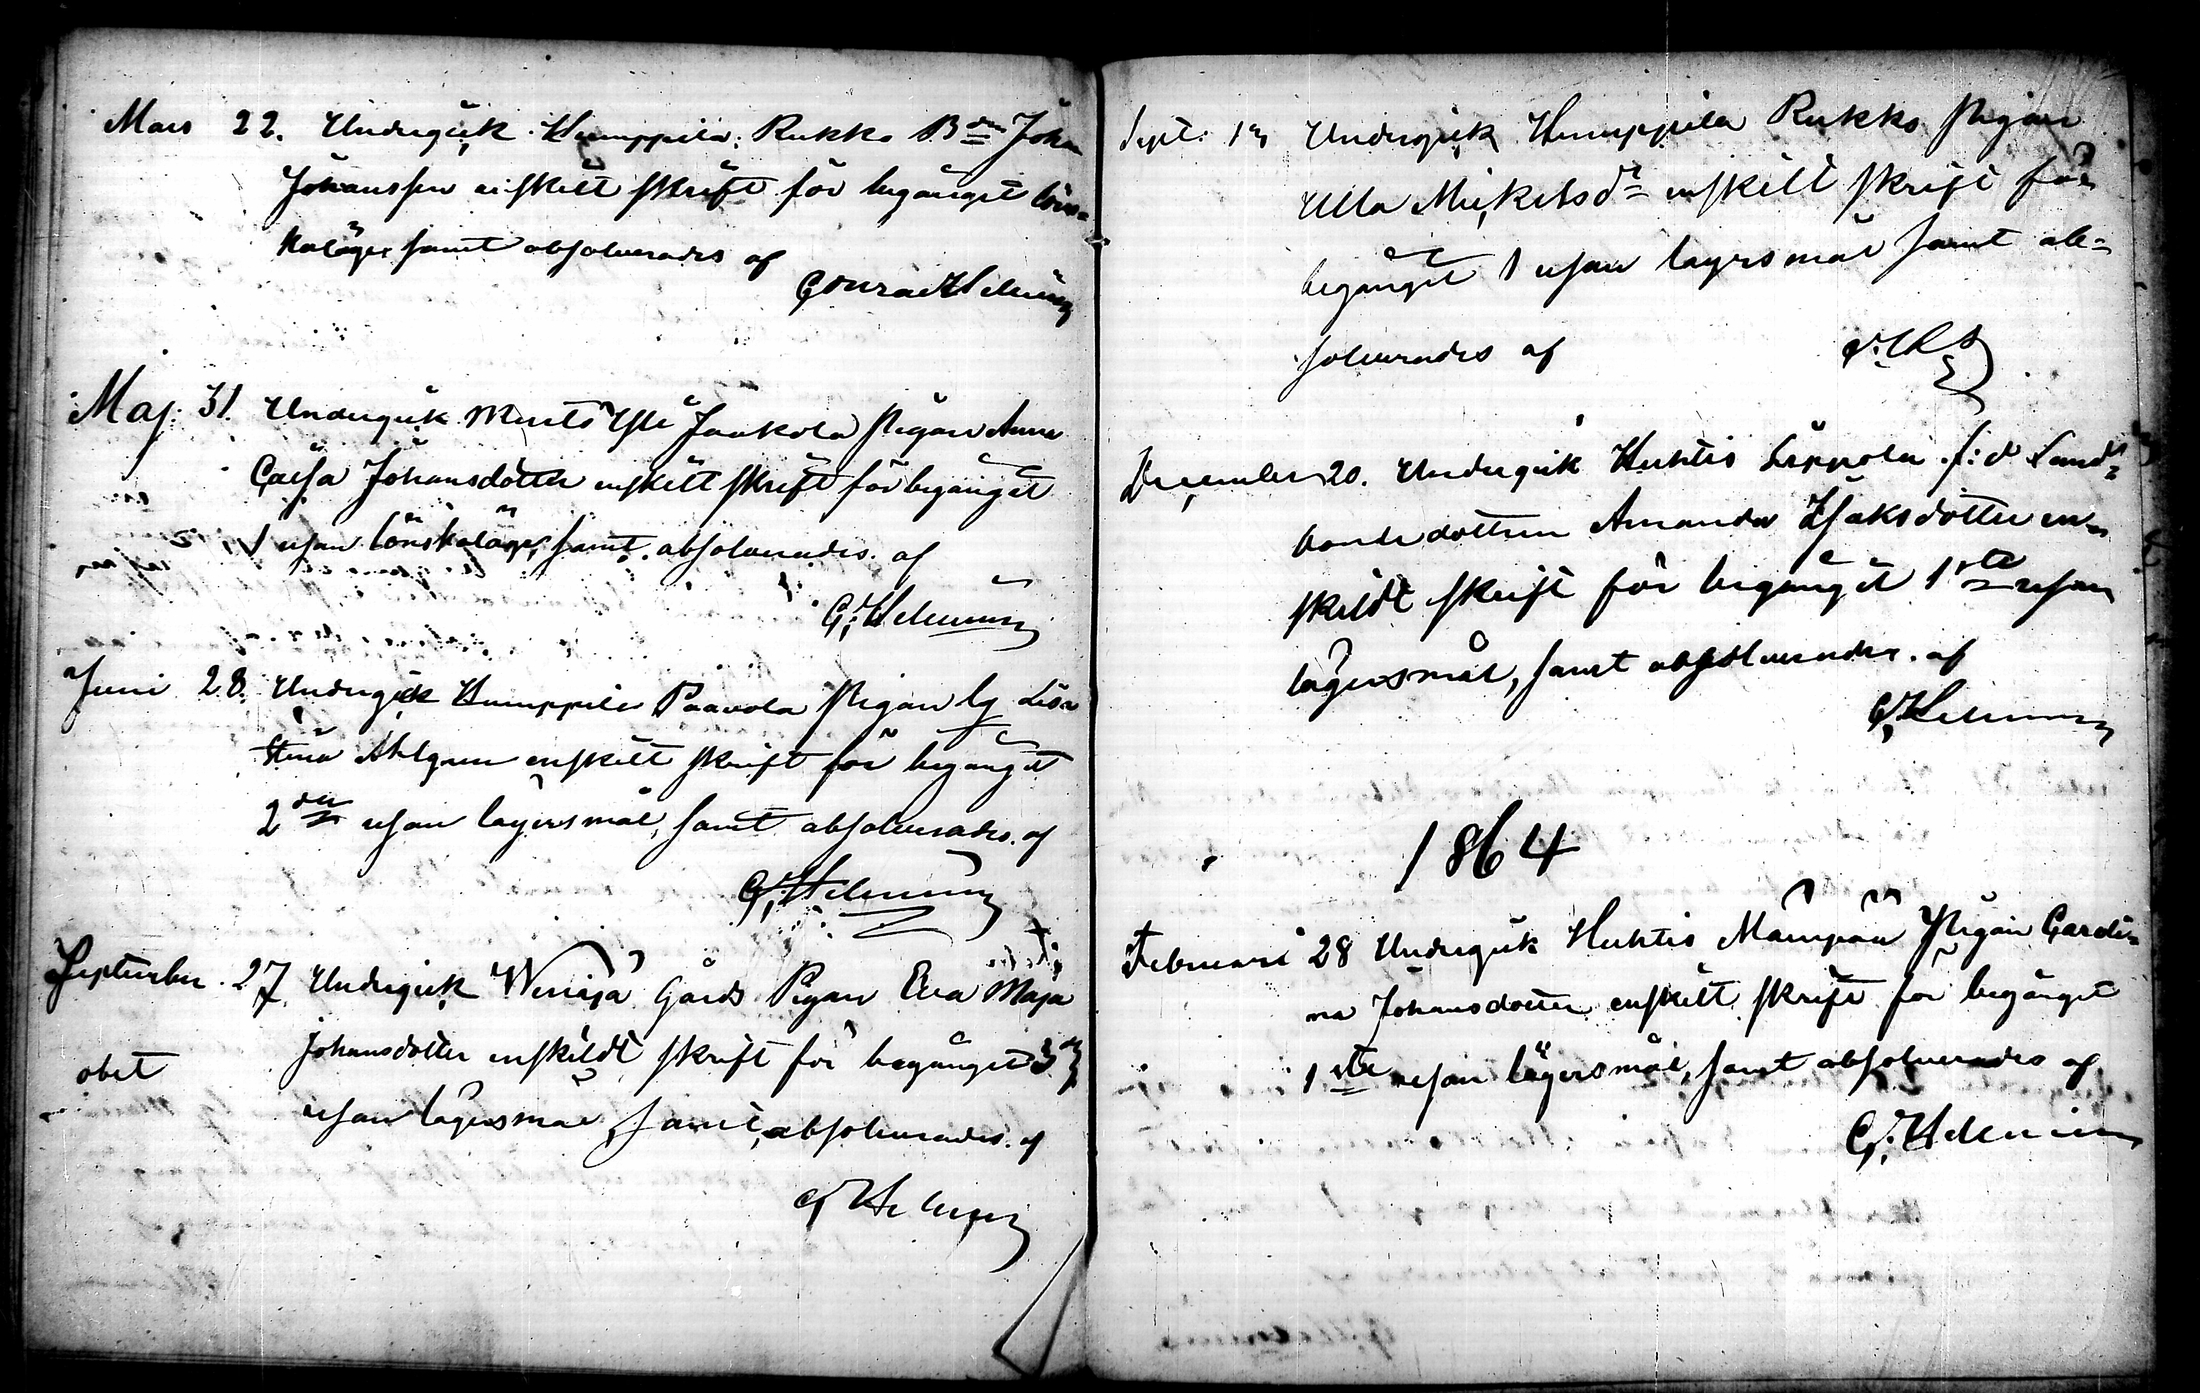 Mars 22. Undergick Humppila Rukko B<sup>den</sup> Johan
Johansson enskilt skrift för begånget löns-
kaläge samt absolverades af
Conrad Helenius
Maj 31. Undergick Murto Yli Jaakola Pigan Anna
Caisa Johansdotter enskilt skrift för begånget
1 resan lönskaläge, samt absolverades af
C: Helenius
Juni 28. Undergick Humppila Paavola Pigan lg Lovi
stina Ahlgren enskilt skrift för begånget
2<sup>dra</sup> resan lägersmål, samt absolverades af
C: Helenius
September 27. Undergick Gårds Pigan Eva Maja
obet Johansdotter enskildt skrift för begånget 3
resan lägersmål, samt absolverades af
C Helenius
Sept: Undergick Humppila Rukko Pigan
Ulla Mickelsd<sup>r</sup> enskilt skrift för
begånget 1 resan lägersmål samt ab-
solverades af
December 20. Undergick Huhtis Seppola f: d Land-
bonde dottren Amanda Isaksdotter en-
skildt skrift för begånget 1<sup>sta</sup> resan
lägersmål, samt absolverades af
C: Helenius
1864
Februari 28 Undergick Huhtis Mämpää Pigan Caroli-
na Johansdotter enskilt skrift för begånget
1<sup>sta</sup> resan lägersmål, samt absolverades af
C: Helenius